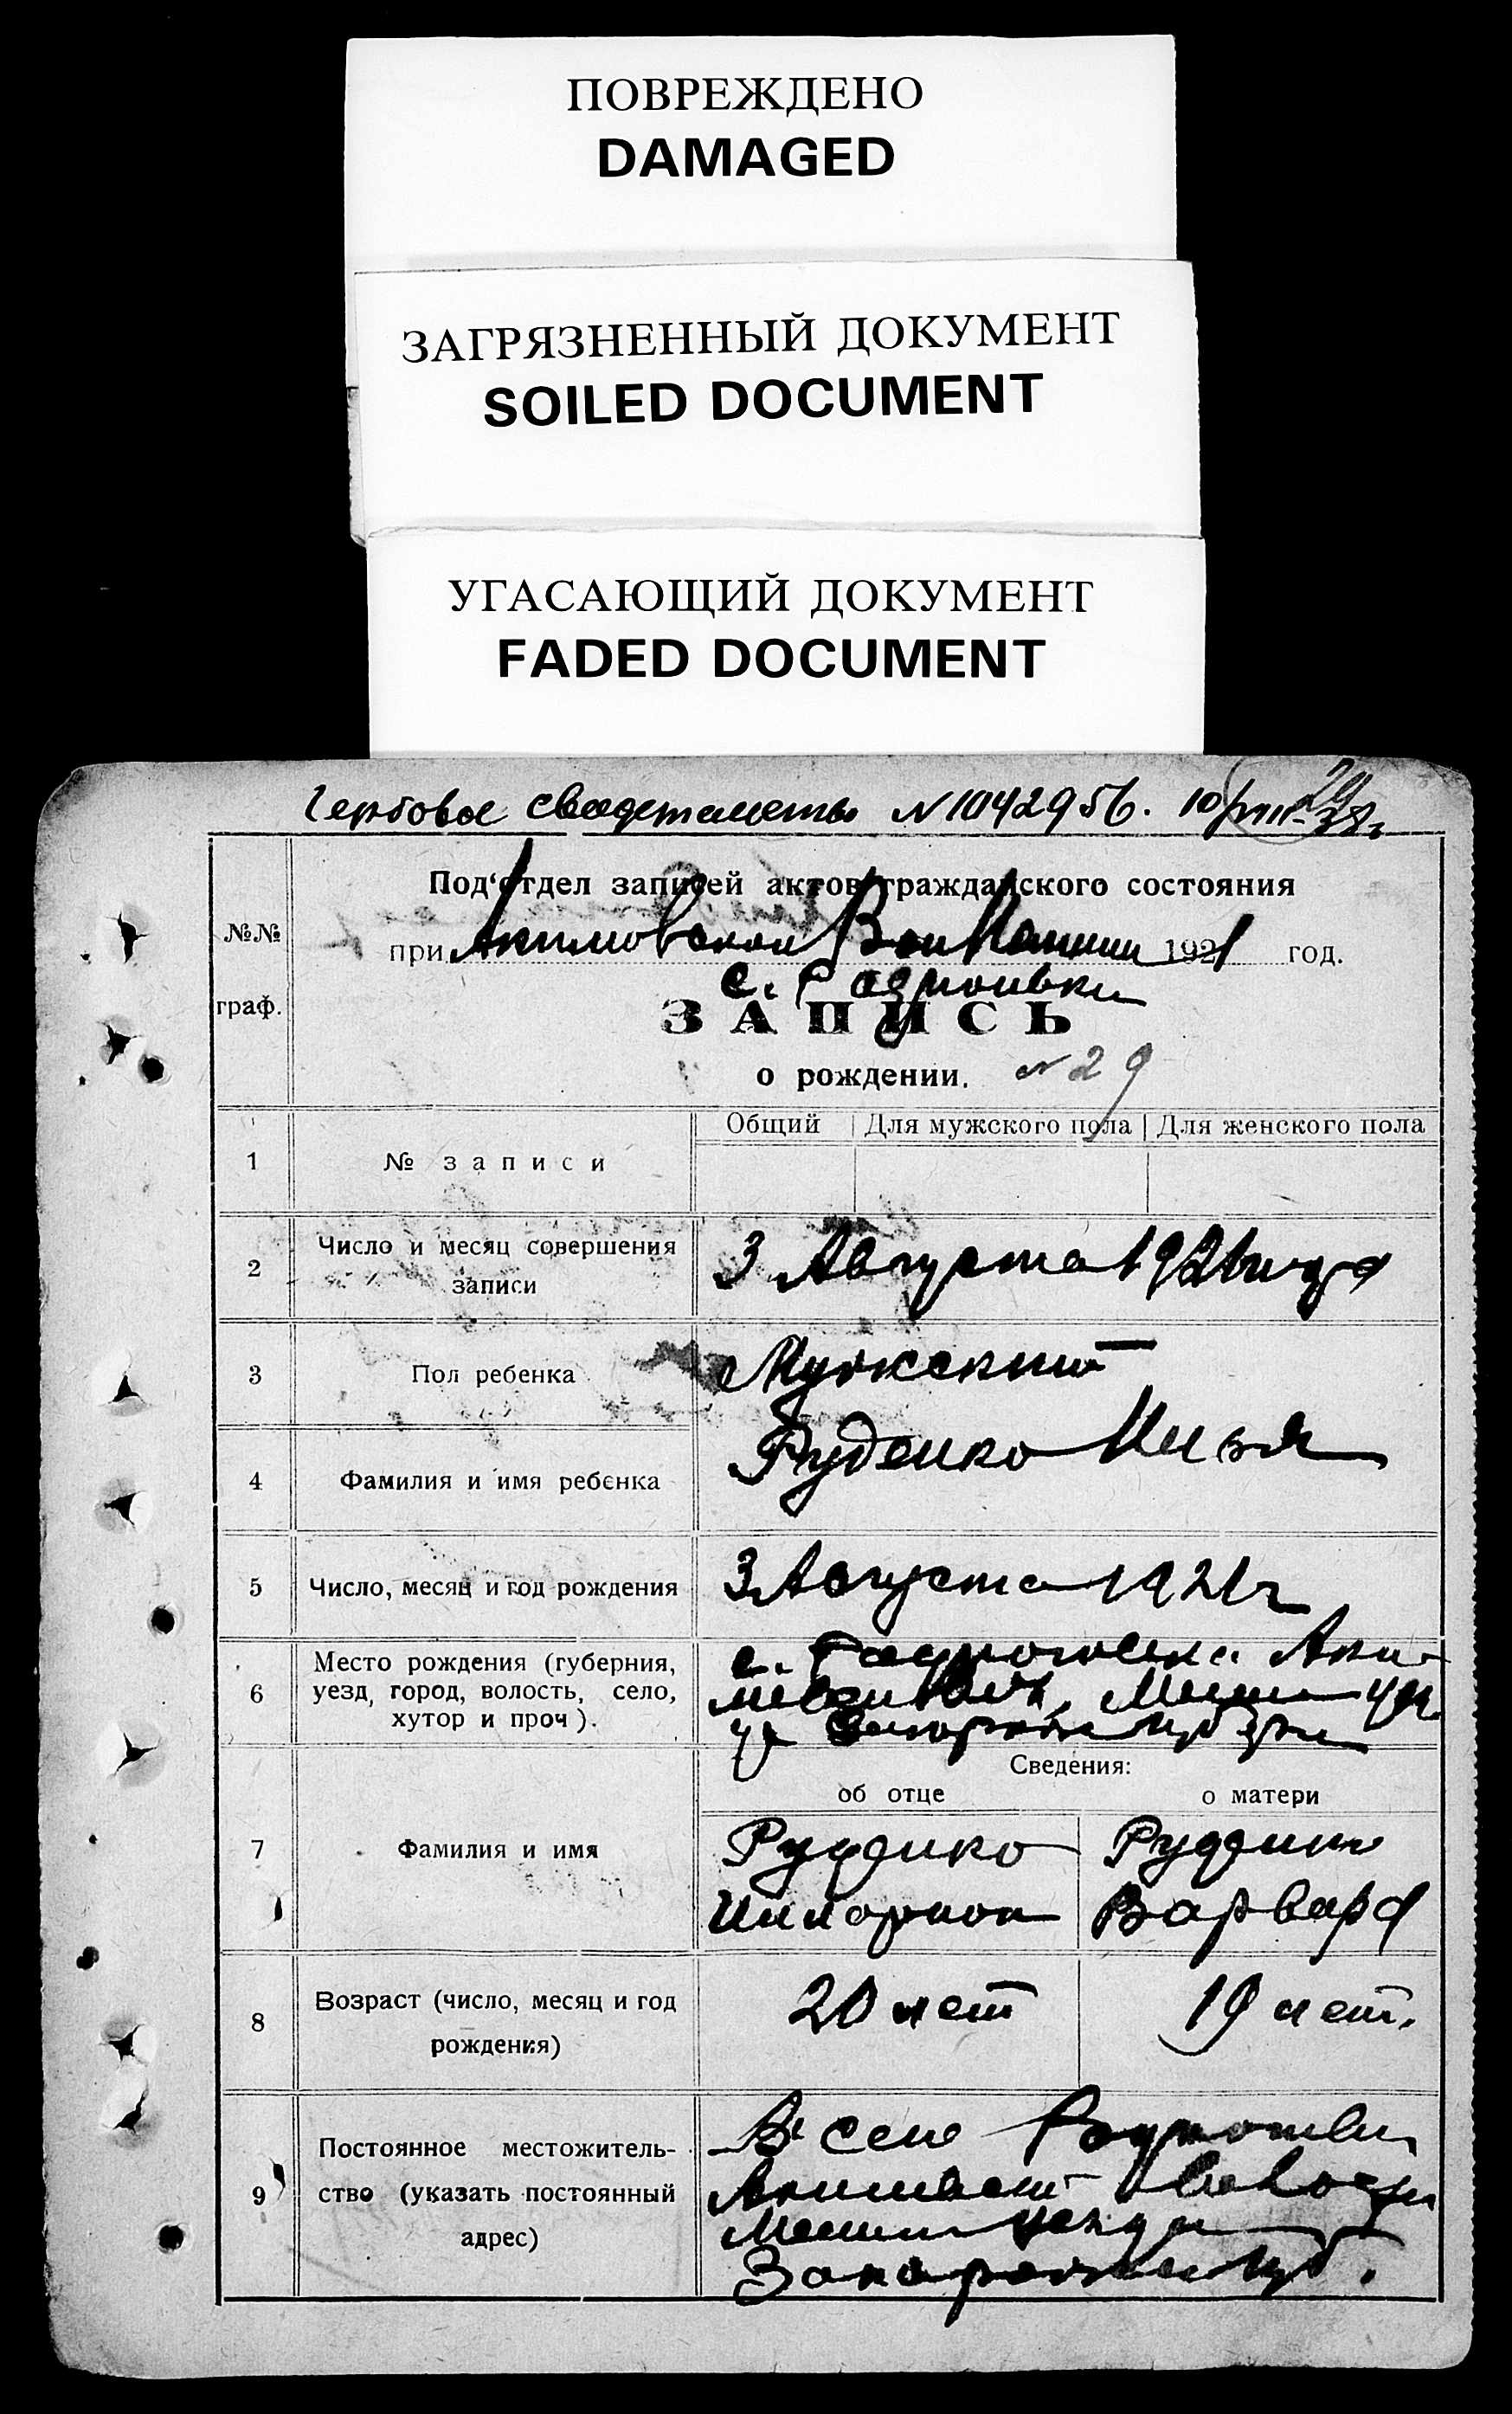 ПОВРЕЖДЕНО
DAMAGED
ЗАГРЯЗНЕННЫЙ ДОКУМЕНТ
SOILED DOCUMENT
УГАСАЮЩИЙ ДОКУМЕНТ
FADED DOCUMENT
Гербовое свидетельство N 1042956. 10/VIII-38г
№№ граф.
Под‘отдел записей актов гражданского состояния
при Акимовском Вол 1921 год.
с. Родионовки
ЗАПИСЬ
о рождении. N 29
Общий Для мужского пола Для женского пола
1 № записи
2 Число и месяц совершения записи 3 Августа 1921 года
3 Пол ребенка Мужской
4 Фамилия и имя ребенка Руденко Илья
5 Число, месяц и год рождения 3 Августа 1921 г
6 Место рождения (губерния, уезд, город, волость, село, хутор и проч). с. Родионовка Аки-
Сведения:
об отце о матери
7 Фамилия и имя Руденко Руденко
Илларион Варвара
8 Возраст (число, месяц и год рождения) 20 лет 19 лет.
9 Постоянное местожитель-
ство (указать постоянный
адрес)
В селе Родионовки
Акимовской Волости
уезда
губ.